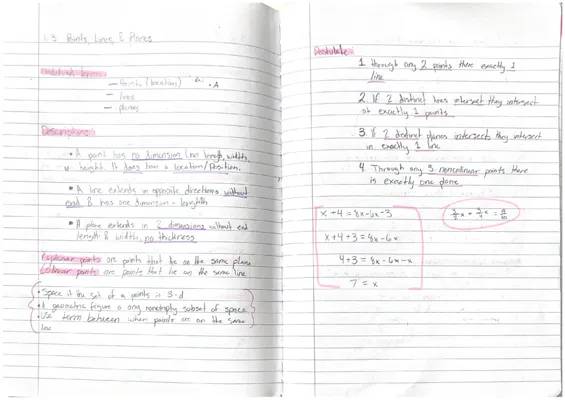 1.3 Points, Lines, & Planes
Undefined terms:
— Points (location) • A
— lines
— planes
Descriptions:
• A point has no dimension (no length, width,
or height. It does have a location/Position.
• A line extends in opposite directions without
end & has one dimension - length
• A plane extends in 2 dimensions without end
length & width, no thickness
Coplanar points are points that lie on the same plane
Collinear points are points that lie on the same line
• Space is the set of a points is 3-d
• A geometric figure is any nonempty subset of space
• Use term between when points are on the same
line
Postulate:
1. through any 2 points there exactly 1
line
2. If 2 distinct lines intersect they intersect
at exactly 1 points
3. If 2 distinct planes intersects they intersect
in exactly 1 line
4. Through any 3 noncollinear points there
is exactly one plane
x + 4 = 8x - 6x - 3
x + 4 + 3 = 8x - 6x
4 + 3 = 8x - 6x - x
7 = x